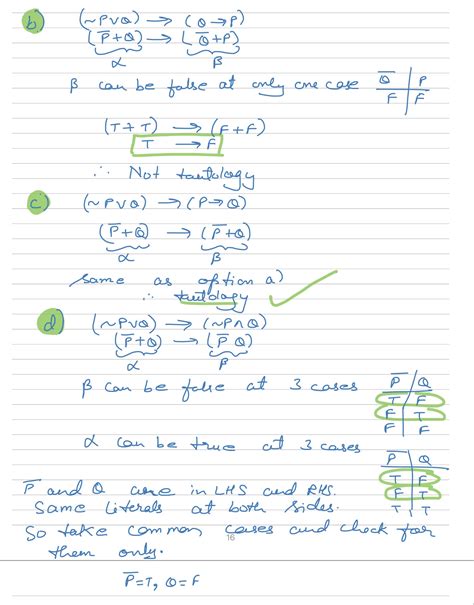 b) (~P∨Q) → (Q→P)
(P̅+Q) → (Q̅+P)
α β
β can be false at only one case Q̅ P
F F
(T+T) → (F+F)
T → F
∴ Not tautology
c) (~P∨Q) → (P→Q)
(P̅+Q) → (P̅+Q)
α β
same as option a)
∴ tautology ✓
d) (~P∨Q) → (~P∧Q)
(P̅+Q) → (P̅ Q)
α β
β can be false at 3 cases P̅ Q
T F
F T
F F
α can be true at 3 cases P̅ Q
T F
F T
T T
P̅ and Q are in LHS and RHS.
Same literals at both sides.
So take common cases and check for
16
them only.
P̅=T, Q=F